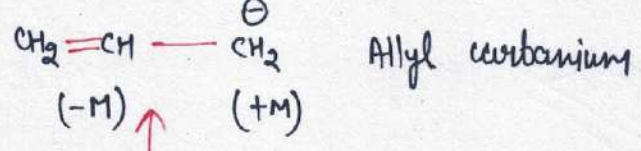 ⊖
CH₂=CH—CH₂ Allyl carbanium
(-M) (+M)